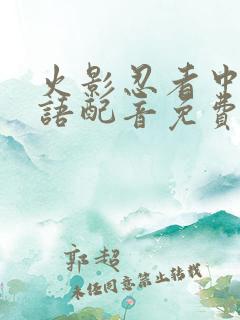 火影忍者中
語配音免費
郭超
未經同意禁止轉載